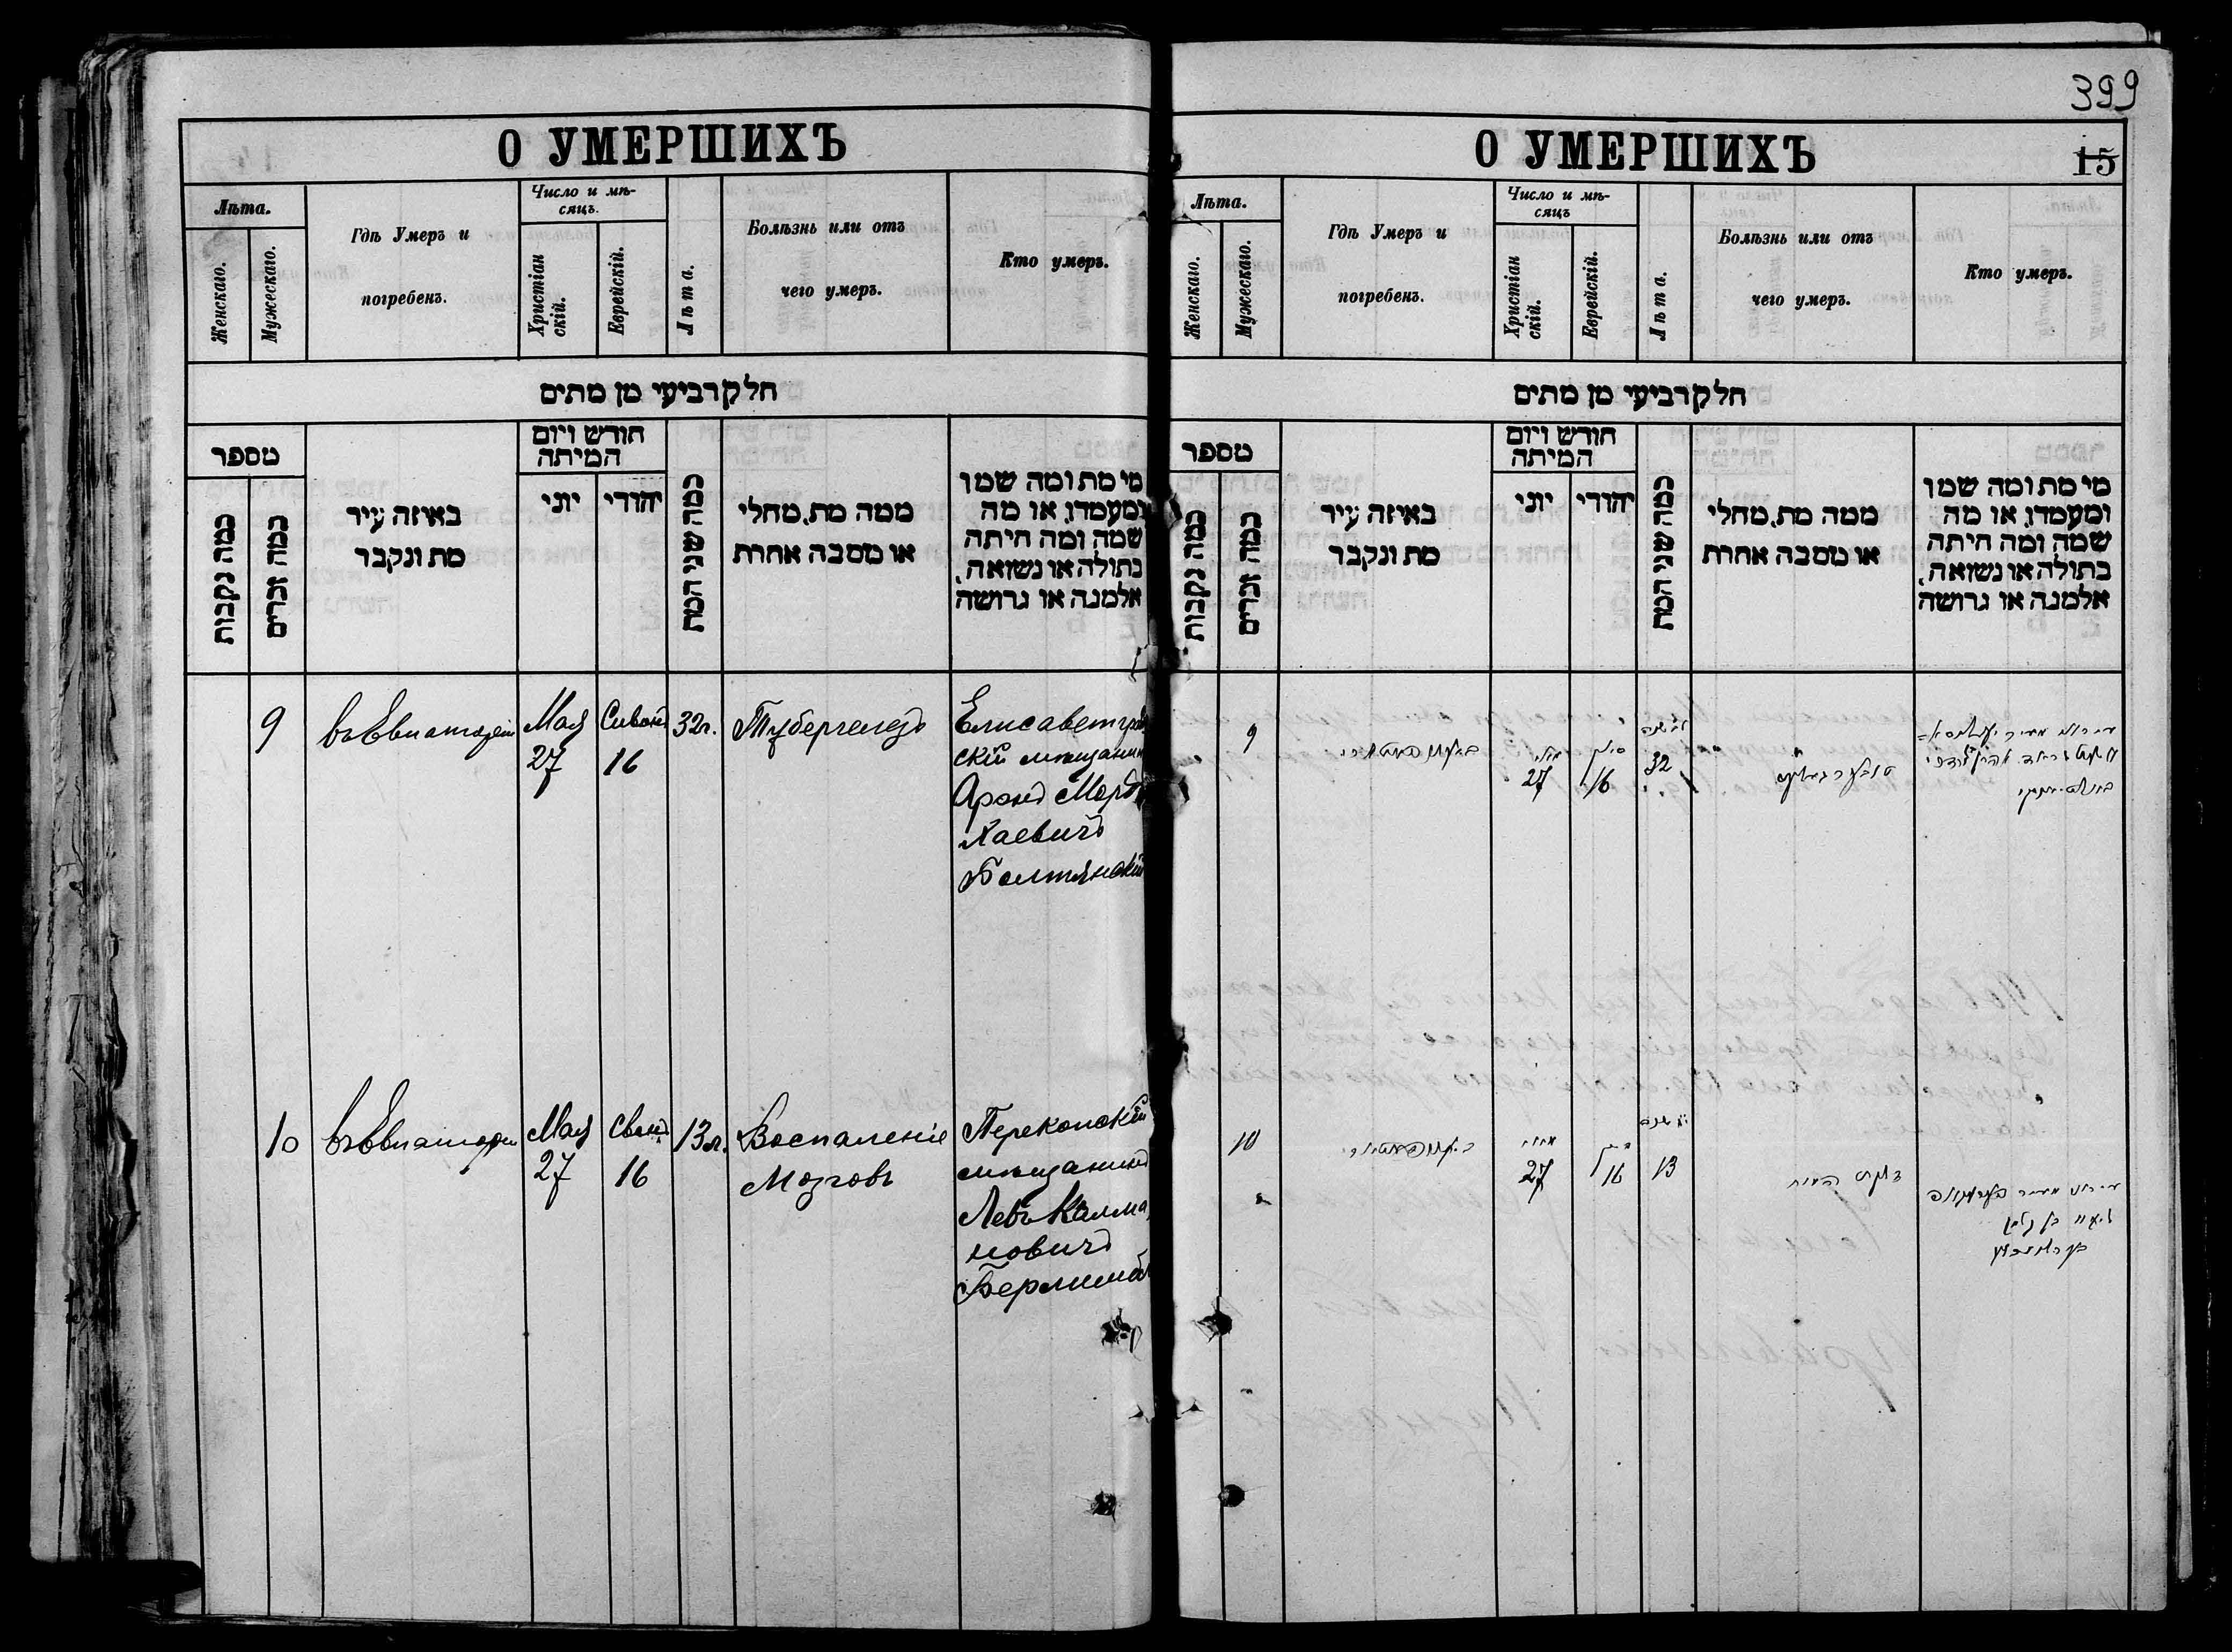 О УМЕРШИХЪ
Лѣта.
Женскаго.
Мужескаго.
Гдѣ Умеръ и
погребенъ.
Число и мѣ-
сяцъ.
Христіан
скій.
Еврейскій.
Лѣта.
Болѣзнь или отъ
чего умеръ.
Кто умеръ.
חלק רביעי מן מתים
מספר
כמה נקבות
כמה זכרים
באיזה עיר
מת ונקבר
חודש ויום
המיתה
יוני
יהודי
כמה שני המת
ממה מת, מחלי
או מסבה אחרת
מי מת ומה שמו
ומעמדו, או מה
שמה ומה היתה
בתולה או נשואה,
אלמנה או גרושה
9
въ Евпаторіи
Мая
27
Сиванъ
16
32 г.
Туберкулезъ
Елисаветград
скій мѣщанинъ
Аронъ Мордъ
хаевичъ
Балтянскій
10
въ Евпаторіи
Мая
27
Сванъ
16
13 л.
Воспаленіе
Мозговъ
Перекопскій
мѣщанинъ
Левъ Калма
новичъ
399
О УМЕРШИХЪ
15
Лѣта.
Женскаго.
Мужескаго.
Гдѣ Умеръ и
погребенъ.
Число и мѣ-
сяцъ
Христіан
скій.
Еврейскій.
Лѣта.
Болѣзнь или отъ
чего умеръ.
Кто умеръ.
חלק רביעי מן מתים
מספר
כמה נקבות
כמה זכרים
באיזה עיר
מת ונקבר
חודש ויום
המיתה
יוני
יהודי
כמה שני המת
ממה מת, מחלי
או מסבה אחרת
מי מת ומה שמו
ומעמדו, או מה
שמה ומה היתה
בתולה או נשואה,
אלמנה או גרושה
9
27
סיון
16
32
10
27
16
13